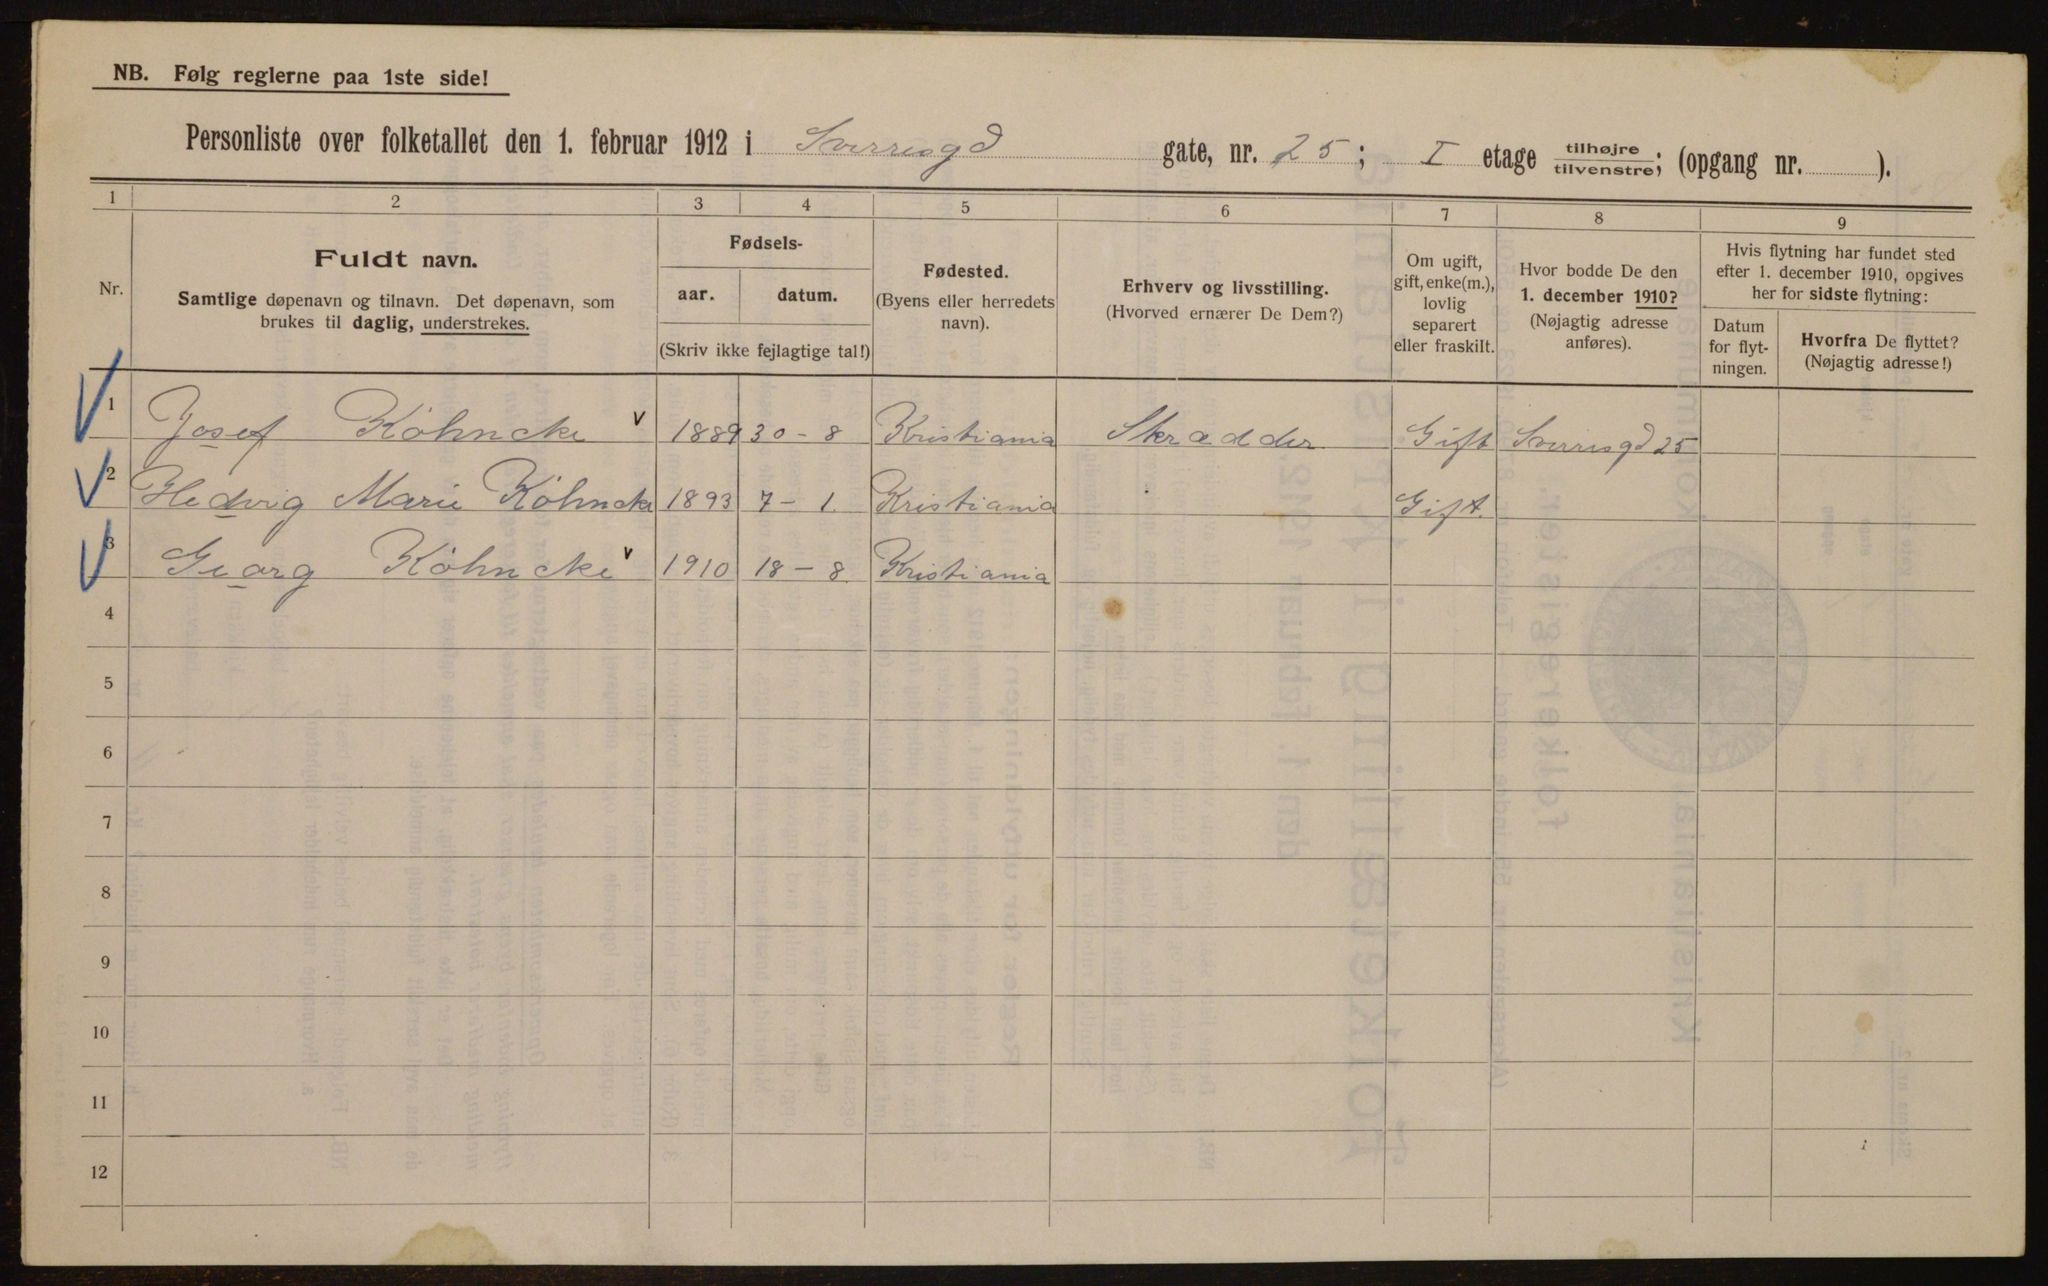 NB. Følg reglerne paa 1ste side!
Personliste over folketallet den 1. februar 1912 i Sverresgd gate, nr. 25; I etage tilhøjre tilvenstre; (opgang nr. ).
1 2 3 4 5 6 7 8 9
Nr.
Fuldt navn.
Samtlige døpenavn og tilnavn. Det døpenavn, som
brukes til daglig, understrekes.
Fødsels-
aar. datum.
(Skriv ikke fejlagtige tal!)
Fødested.
(Byens eller herredets
navn).
Erhverv og livsstilling.
(Hvorved ernærer De Dem?)
Om ugift,
gift, enke(m.),
lovlig
separert
eller fraskilt.
Hvor bodde De den
1. december 1910?
(Nøjagtig adresse
anføres).
Hvis flytning har fundet sted
efter 1. december 1910, opgives
her for sidste flytning:
Datum
for flyt-
ningen.
Hvorfra De flyttet?
(Nøjagtig adresse!)
1 Josef Köhncke v 1889 30-8 Kristiania Skrædder Gift Sverresgd 25
2 Hedvig Marie Köhncke 1893 7-1. Kristiania Gift.
3 Georg Köhncke v 1910 18-8. Kristiania
4
5
6
7
8
9
10
11
12